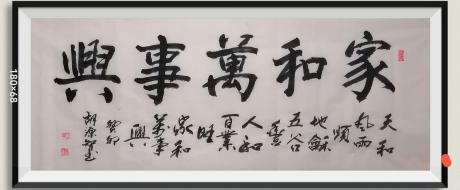 家和萬事興
天和
風雨
順
地龢
五谷
豐
人和
百業
旺
家和
萬事
興
癸卯
180×68